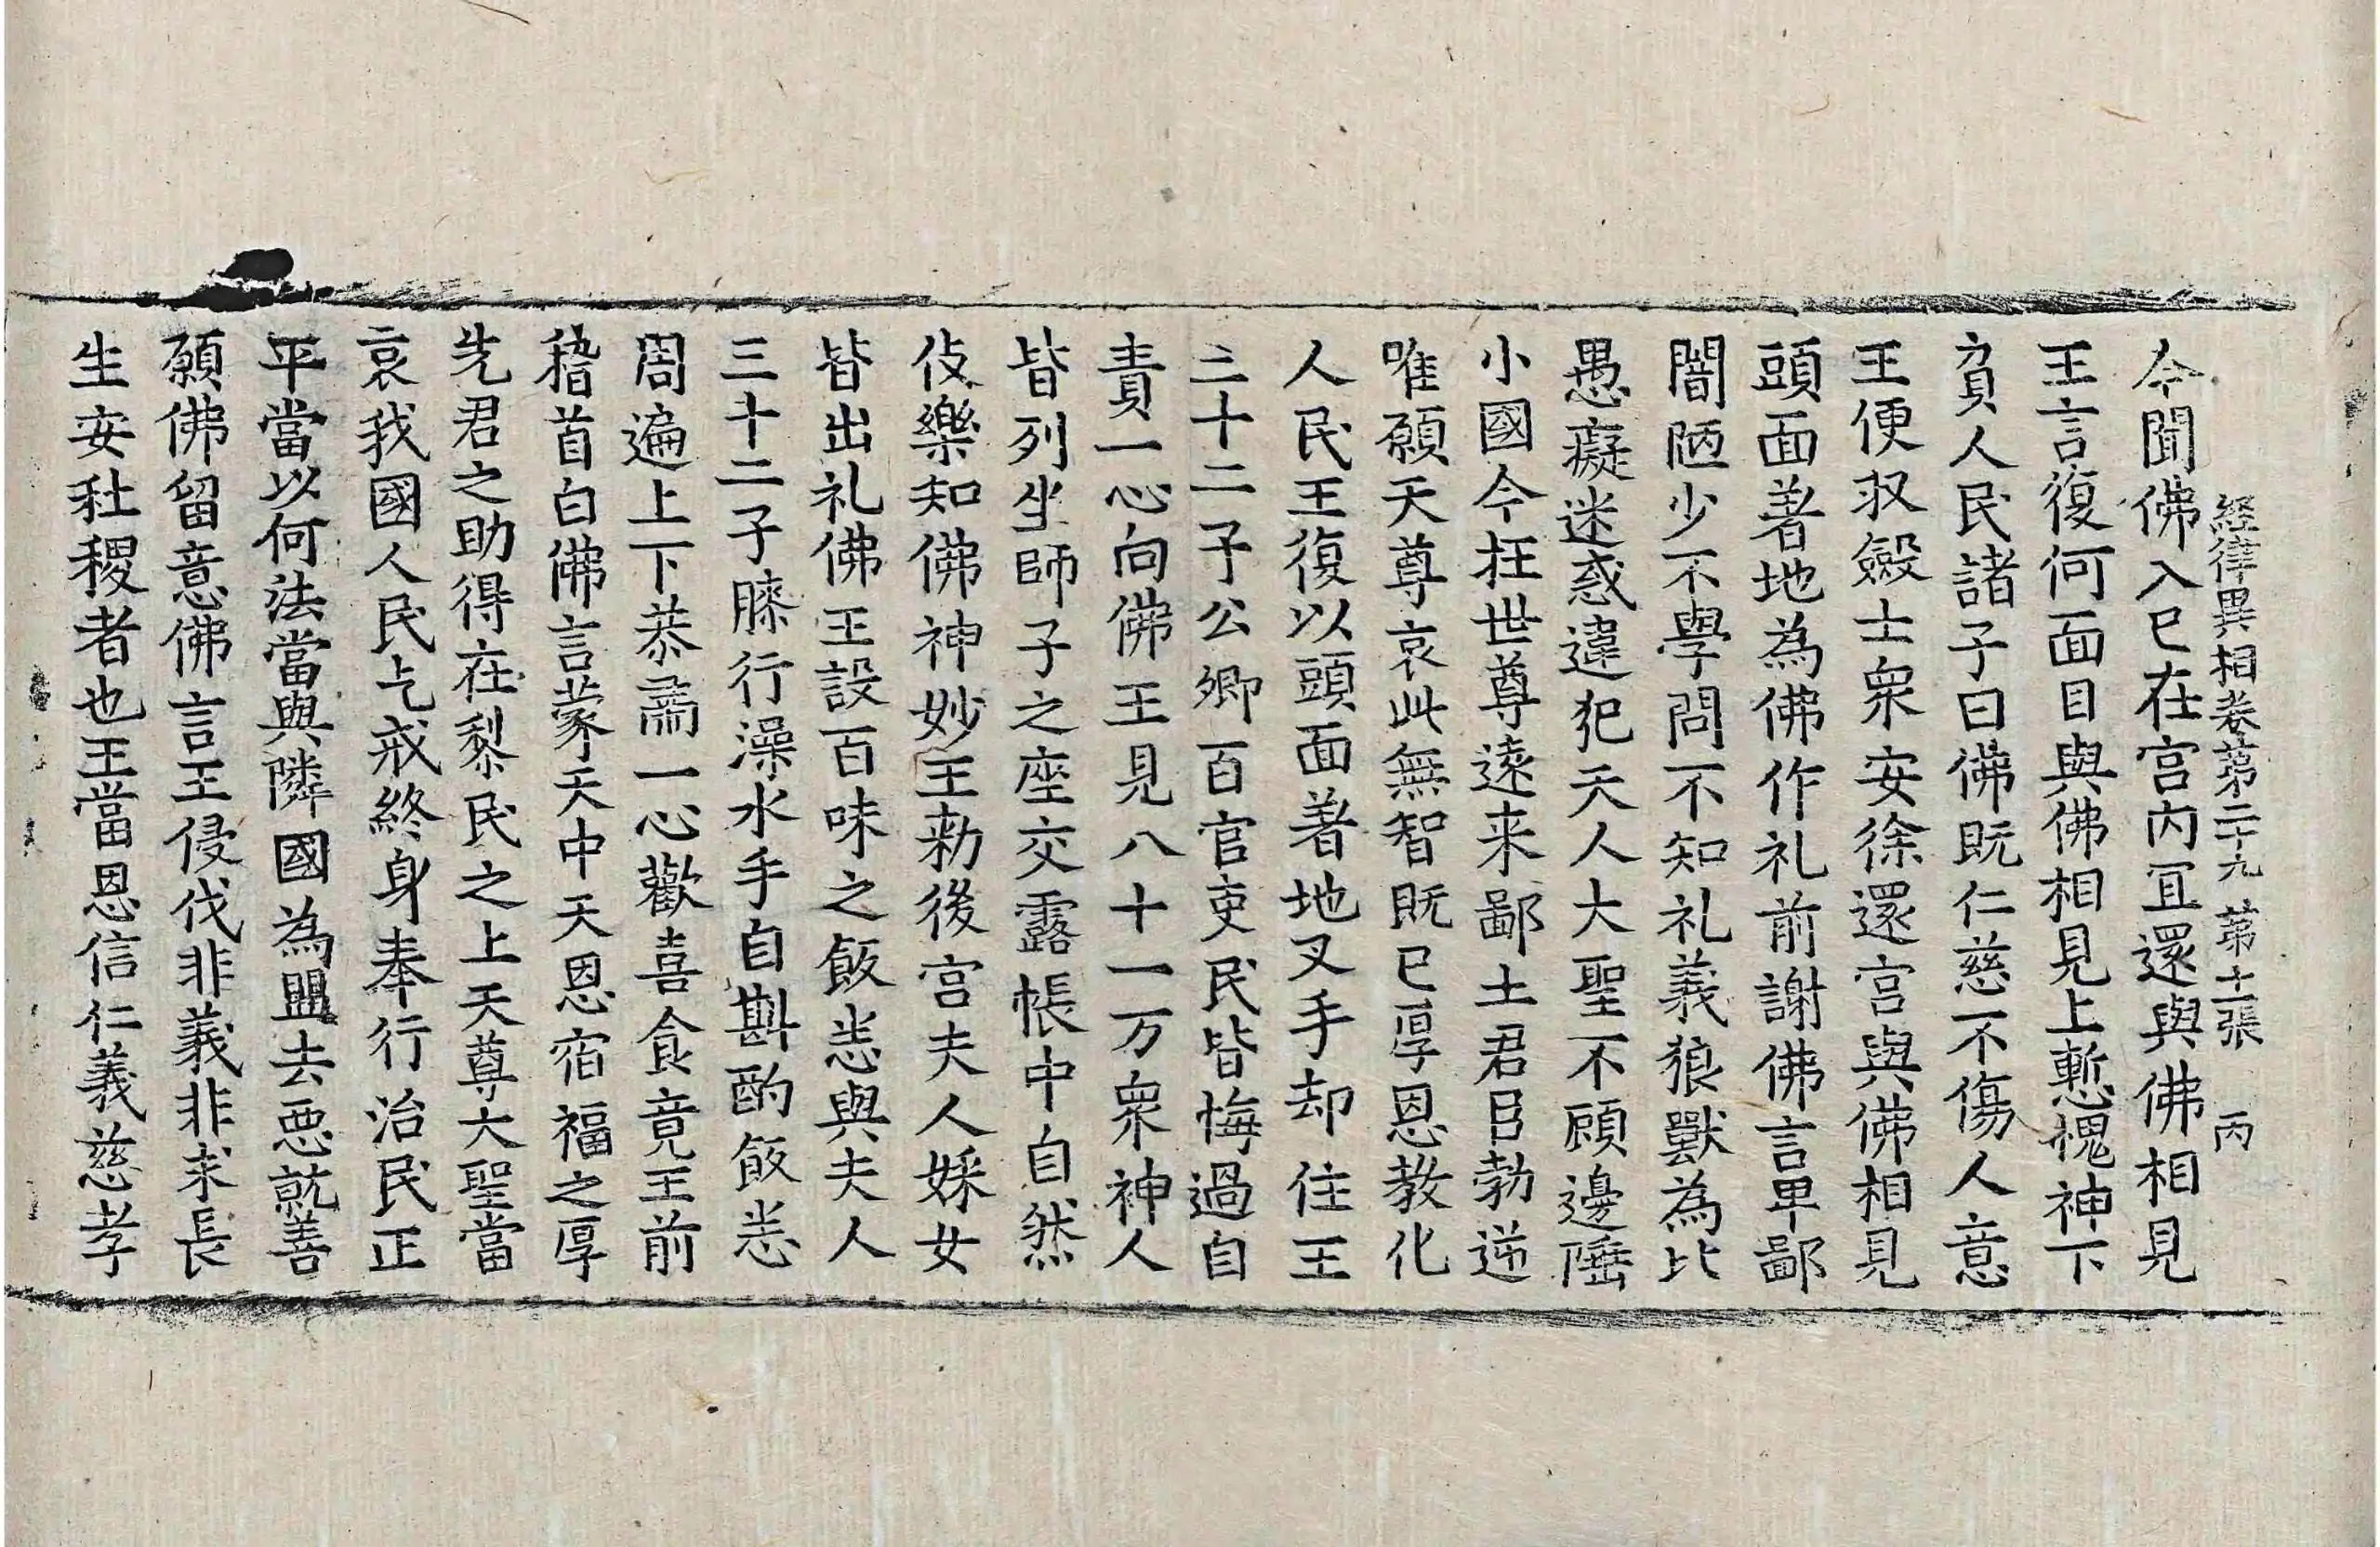 経律異相卷第二十九 第十二張 丙
今聞佛入已在宮內冝還與佛相見
王言復何面目與佛相見上慙愧神下
負人民諸子曰佛既仁慈不傷人意
王便収斂士衆安徐還宮與佛相見
頭面著地為佛作礼前謝佛言卑鄙
闇陋少不學問不知礼義狼獸為比
愚癡迷惑違犯天人大聖不顧邊陲
小國今抂世尊遠来鄙土君臣勃逆
唯願天尊哀此無智既已厚恩教化
人民王復以頭面著地叉手却住王
二十二子公卿百官吏民皆悔過自
責一心向佛王見八十一万衆神人
皆列坐師子之座交露帳中自然
伎樂知佛神妙王勑後宮夫人婇女
皆出礼佛王設百味之飯悉與夫人
三十二子膝行澡水手自斟酌飯悉
周遍上下恭肅一心歡喜食竟王前
稽首白佛言蒙天中天恩宿福之厚
先君之助得在黎民之上天尊大聖當
哀我國人民乞戒終身奉行治民正
平當以何法當與隣國為盟去惡就善
願佛留意佛言王侵伐非義非求長
生安社稷者也王當恩信仁義慈孝